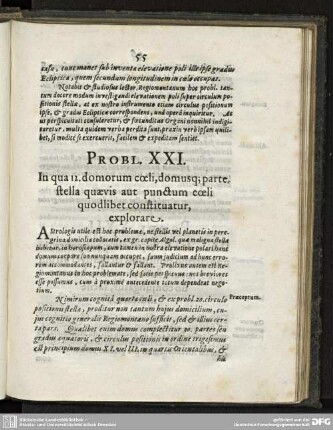 55
casu, tunc manet sub inventa elevatione poli ille ipse gradus
Eclipticæ, quem secundum longitudinem in cœlo occupat.
Notabit & studiosus lector, Regiomontanum hoc probl. tan-
tum docere modum investigandi elevationem poli super circulum po-
sitionis stellæ, at ex nostro instrumento etiam circulus positionum
ipse, & gradus Eclipticæ correspondens, und opera inquiritur. At
ut perspicuitati consuleretur, & fecunditas Organi nonnihil indigi-
taretur, multa quidem verba perdita sunt, praxin verò ipsam quili-
bet, si modicè se exercuerit, facilem & expeditam sentiet.
PROBL. XXI.
In qua 12. domorum cœli, domusq; parte,
stella quævis aut punctum cœli
quodlibet constituatur,
explorare.
Astrologis utile est hoc problema, ne stellæ vel planetæ in pere-
grina domicilia
in horoscopum, cum tamen in nostra elevatione polari hunc
domum
rem accommodantes, fallantur & fallant. Prolixus autem est Re-
giomontanus in hoc problemate, sed satis perspicuus: nos breviores
esse possumus, cum à proximè antecedenti totum dependeat nego-
tium.
Præceptum.
Nimirum cognitâ quartâ cœli, & ex probl. 20. circulo
positionis stellæ, proditur non tantum hujus domicilium, cu-
jus cognitio generalis Regiomontano sufficit, sed & illius cer-
ta pars. Quælibet enim domus complectitur 30. partes seu
gradus æquatoris, & circulus positionis in ordine trigesimus
est principium domus XI. vel III. in quartis Orientalibus, &
Bibliotheca
Sächsische Landesbibliothek
Staats- und Universitätsbibliothek Dresden
gefördert von der
Deutschen Forschungsgemeinschaft
DFG